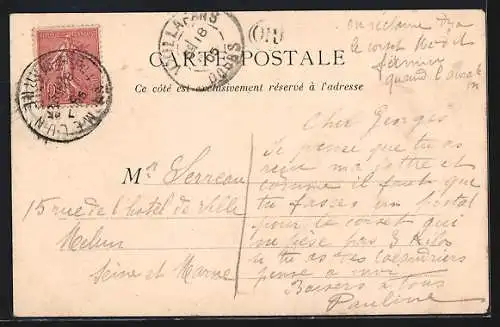 on réclame
le corset
quand
VILLAFANS
18
05
DOUBS
OR
CARTE POSTALE
Ce côté est exclusivement réservé à l'adresse
MELUN
Mr Serreau
15 rue de l'hotel de ville
Melun
Seine et Marne
Cher Georges
Je pense que tu as
reçu ma lettre et
comme il faut que
tu fasses un postal
pour le corset qui
ne pèse pas 3 kilos
si tu as des
pense à moi
Baisers à tous
Pauline